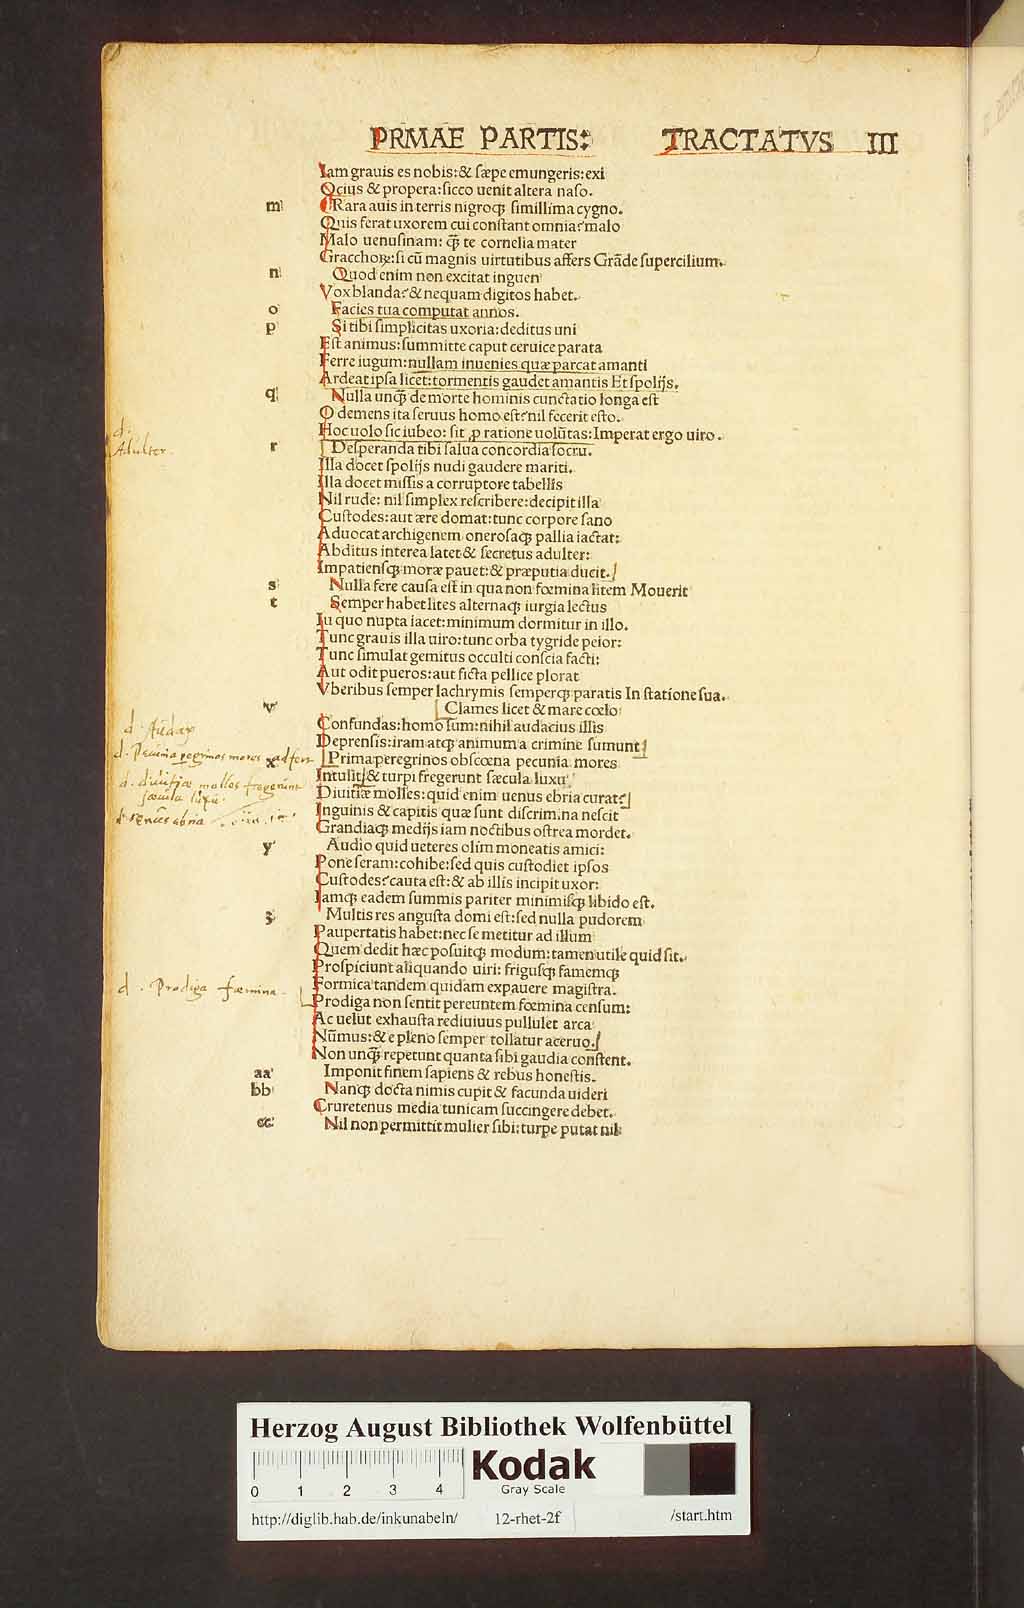 PRMAE PARTIS: TRACTATVS III
Iam grauis es nobis: & sæpe emungeris: exi
Ocius & propera: sicco uenit altera naso.
m Rara auis in terris nigroq; simillima cygno.
Quis ferat uxorem cui constant omnia? malo
Malo uenusinam: q̃ te cornelia mater
Gracchoꝝ: si cū magnis uirtutibus affers Grāde supercilium.
n Quod enim non excitat inguen
Vox blanda? & nequam digitos habet.
o Facies tua computat annos.
p Si tibi simplicitas uxoria: deditus uni
Est animus: summitte caput ceruice parata
Ferre iugum: nullam inuenies quæ parcat amanti
Ardeat ipsa licet: tormentis gaudet amantis Et spolijs.
q Nulla unq̃ de morte hominis cunctatio longa est
O demens ita seruus homo est? nil fecerit esto.
Hoc uolo sic iubeo: sit ꝓ ratione uolūtas: Imperat ergo uiro.
d.
Adulter.
r Desperanda tibi salua concordia socru.
Illa docet spolijs nudi gaudere mariti.
Illa docet missis a corruptore tabellis
Nil rude: nil simplex rescribere: decipit illa
Custodes: aut ære domat: tunc corpore sano
Aduocat archigenem onerosaq; pallia iactat:
Abditus interea latet & secretus adulter:
Impatiensq; moræ pauet: & præputia ducit.
s Nulla fere causa est in qua non fœmina litem Mouerit
t Semper habet lites alternaq; iurgia lectus
In quo nupta iacet: minimum dormitur in illo.
Tunc grauis illa uiro: tunc orba tygride peior:
Tunc simulat gemitus occulti conscia facti:
Aut odit pueros: aut ficta pellice plorat
Vberibus semper lachrymis semperq; paratis In statione sua.
v Clames licet & mare cœlo
Confundas: homo sum: nihil audacius illis
d. Audax
Deprensis: iram atq; animum a crimine sumunt
d. Pecunia peregrinos mores adfert
x Prima peregrinos obscœna pecunia mores
Intulit & turpi fregerunt sæcula luxu
d. diuitiæ molles fregerunt
sæcula luxu.
Diuitiæ molles: quid enim uenus ebria curat?
d. Venus ebria
Inguinis & capitis quæ sunt discrimina nescit
Grandiaq; medijs iam noctibus ostrea mordet.
y Audio quid ueteres olim moneatis amici:
Pone seram: cohibe: sed quis custodiet ipsos
Custodes? cauta est: & ab illis incipit uxor:
Iamq; eadem summis pariter minimisq; libido est.
z Multis res angusta domi est: sed nulla pudorem
Paupertatis habet: nec se metitur ad illum
Quem dedit hæc posuitq; modum: tamen utile quid sit.
Prospiciunt aliquando uiri: frigusq; famemq;
Formica tandem quidam expauere magistra.
d. Prodiga fœmina.
Prodiga non sentit pereuntem fœmina censum:
Ac uelut exhausta rediuiuus pullulet arca
Nūmus: & e pleno semper tollatur aceruo.
Non unq̃ repetunt quanta sibi gaudia constent.
aa Imponit finem sapiens & rebus honestis.
bb Nanq; docta nimis cupit & facunda uideri
Cruretenus media tunicam succingere debet.
cc Nil non permittit mulier sibi: turpe putat nil
Herzog August Bibliothek Wolfenbüttel
0 1 2 3 4
Kodak
Gray Scale
http://diglib.hab.de/inkunabeln/ 12-rhet-2f /start.htm